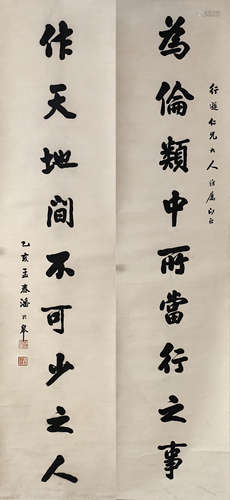 為倫類中所當行之事
行逰仁兄大人
作天地間不可少之人
乙亥孟春潘